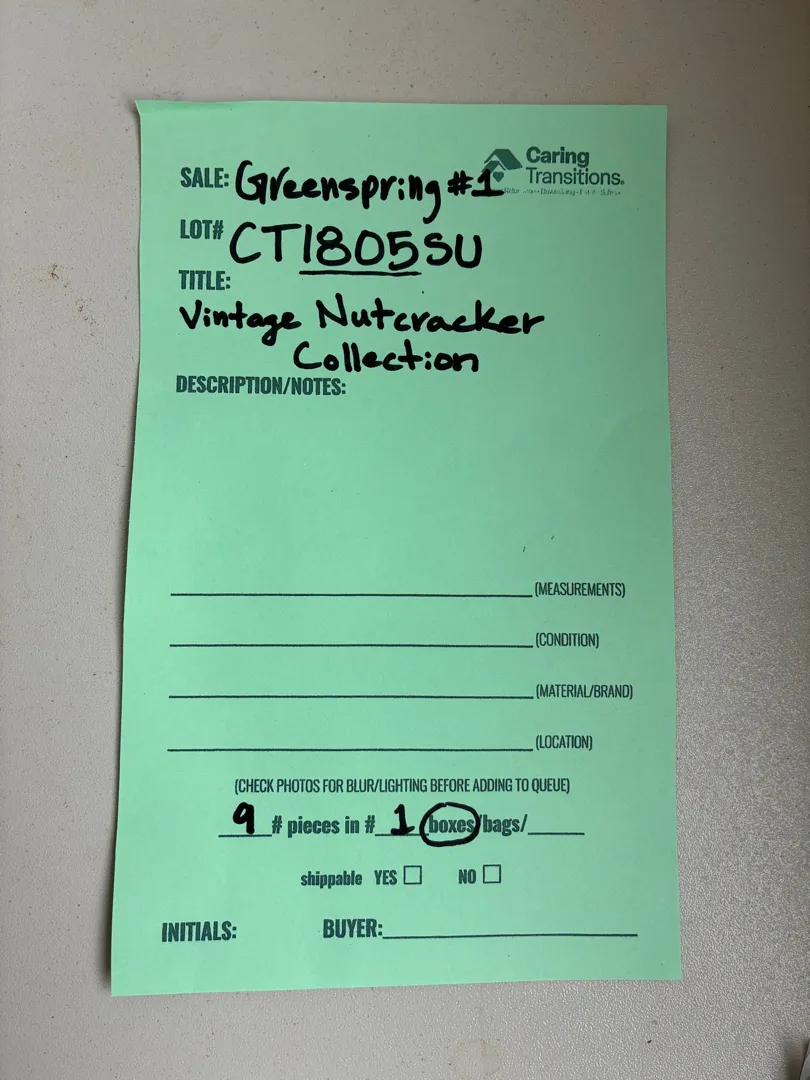 Caring
Transitions®
SALE: Greenspring #1
LOT# CT1805SU
TITLE:
Vintage Nutcracker
Collection
DESCRIPTION/NOTES:
(MEASUREMENTS)
(CONDITION)
(MATERIAL/BRAND)
(LOCATION)
(CHECK PHOTOS FOR BLUR/LIGHTING BEFORE ADDING TO QUEUE)
9 # pieces in # 1 boxes/bags/
shippable YES NO
INITIALS: BUYER: